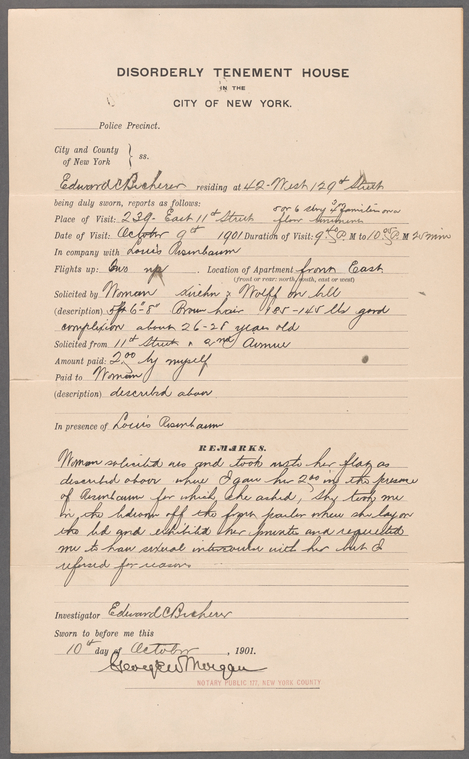 DISORDERLY TENEMENT HOUSE
IN THE
CITY OF NEW YORK.
Police Precinct.
City and County
of New York } ss.
Edward C Becherer residing at 42-West 129th Street
being duly sworn, reports as follows: 5 or 6 story 3 families on a
Place of Visit: 239- East 11th Street floor
Date of Visit: October 9th 1901 Duration of Visit: 9 40 P. M to 10 05 P. M 25 min
In company with Louis Rosenbaum
Flights up: two up Location of Apartment front East
(front or rear: north, south, east or west)
Solicited by Woman & Wolff on bell
(description) 5ft 6"-8" Brown hair 135-145 lbs good
complexion about 26-28 years old
Solicited from 11th Street & 2nd Avenue
Amount paid: 2.00 by myself
Paid to Woman
(description) described above
In presence of Louis Rosenbaum
REMARKS.
Woman solicited us and took us to her flat as
described above where I gave her 2.00 in the presence
of Rosenbaum for which she asked, She took me
in the bedroom off the front parlor where she lay on
the bed and exhibited her privates and requested
me to have sexual intercourse with her but I
refused for reasons
Investigator Edward C Becherer
Sworn to before me this
10th day of October, 1901.
George W Morgan
NOTARY PUBLIC 117, NEW YORK COUNTY